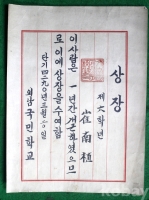 상장
제六학년
崔南植
이 사람은 일년간 개근하였으므
로 이에 상장을 수여함
단기四二九〇年三月
국민학교